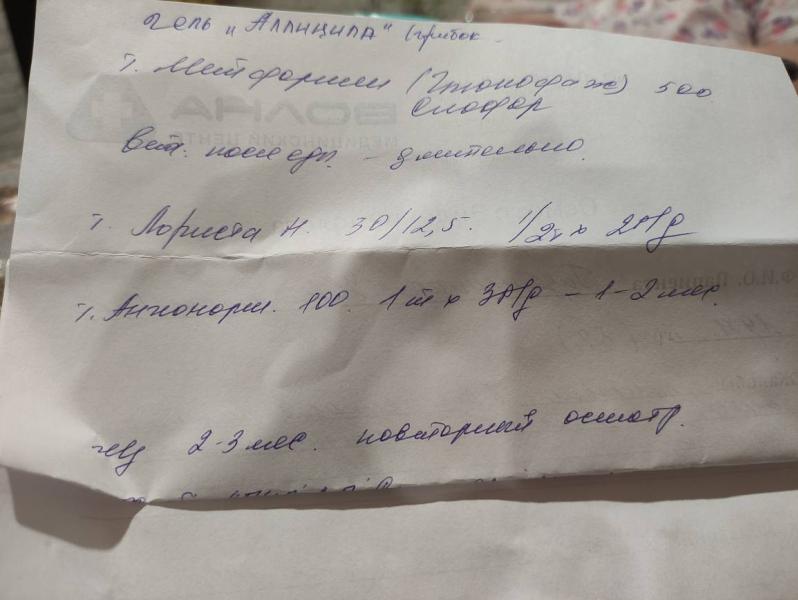 гель "Аллицила" (грибок
т. Метформин (Глюкофаж) 500
Сиофор
Веч. после еды. - длительно.
т. Лориста Н. 50/12,5. 1/2т х 2 Р/д
т. Ангионорм. 100. 1т х 3Р/д - 1-2 мес.
2-3 мес. повторный осмотр.
ВОЛНА
МЕДИЦИНСКИЙ ЦЕНТР
Ф.И.О. Пациента